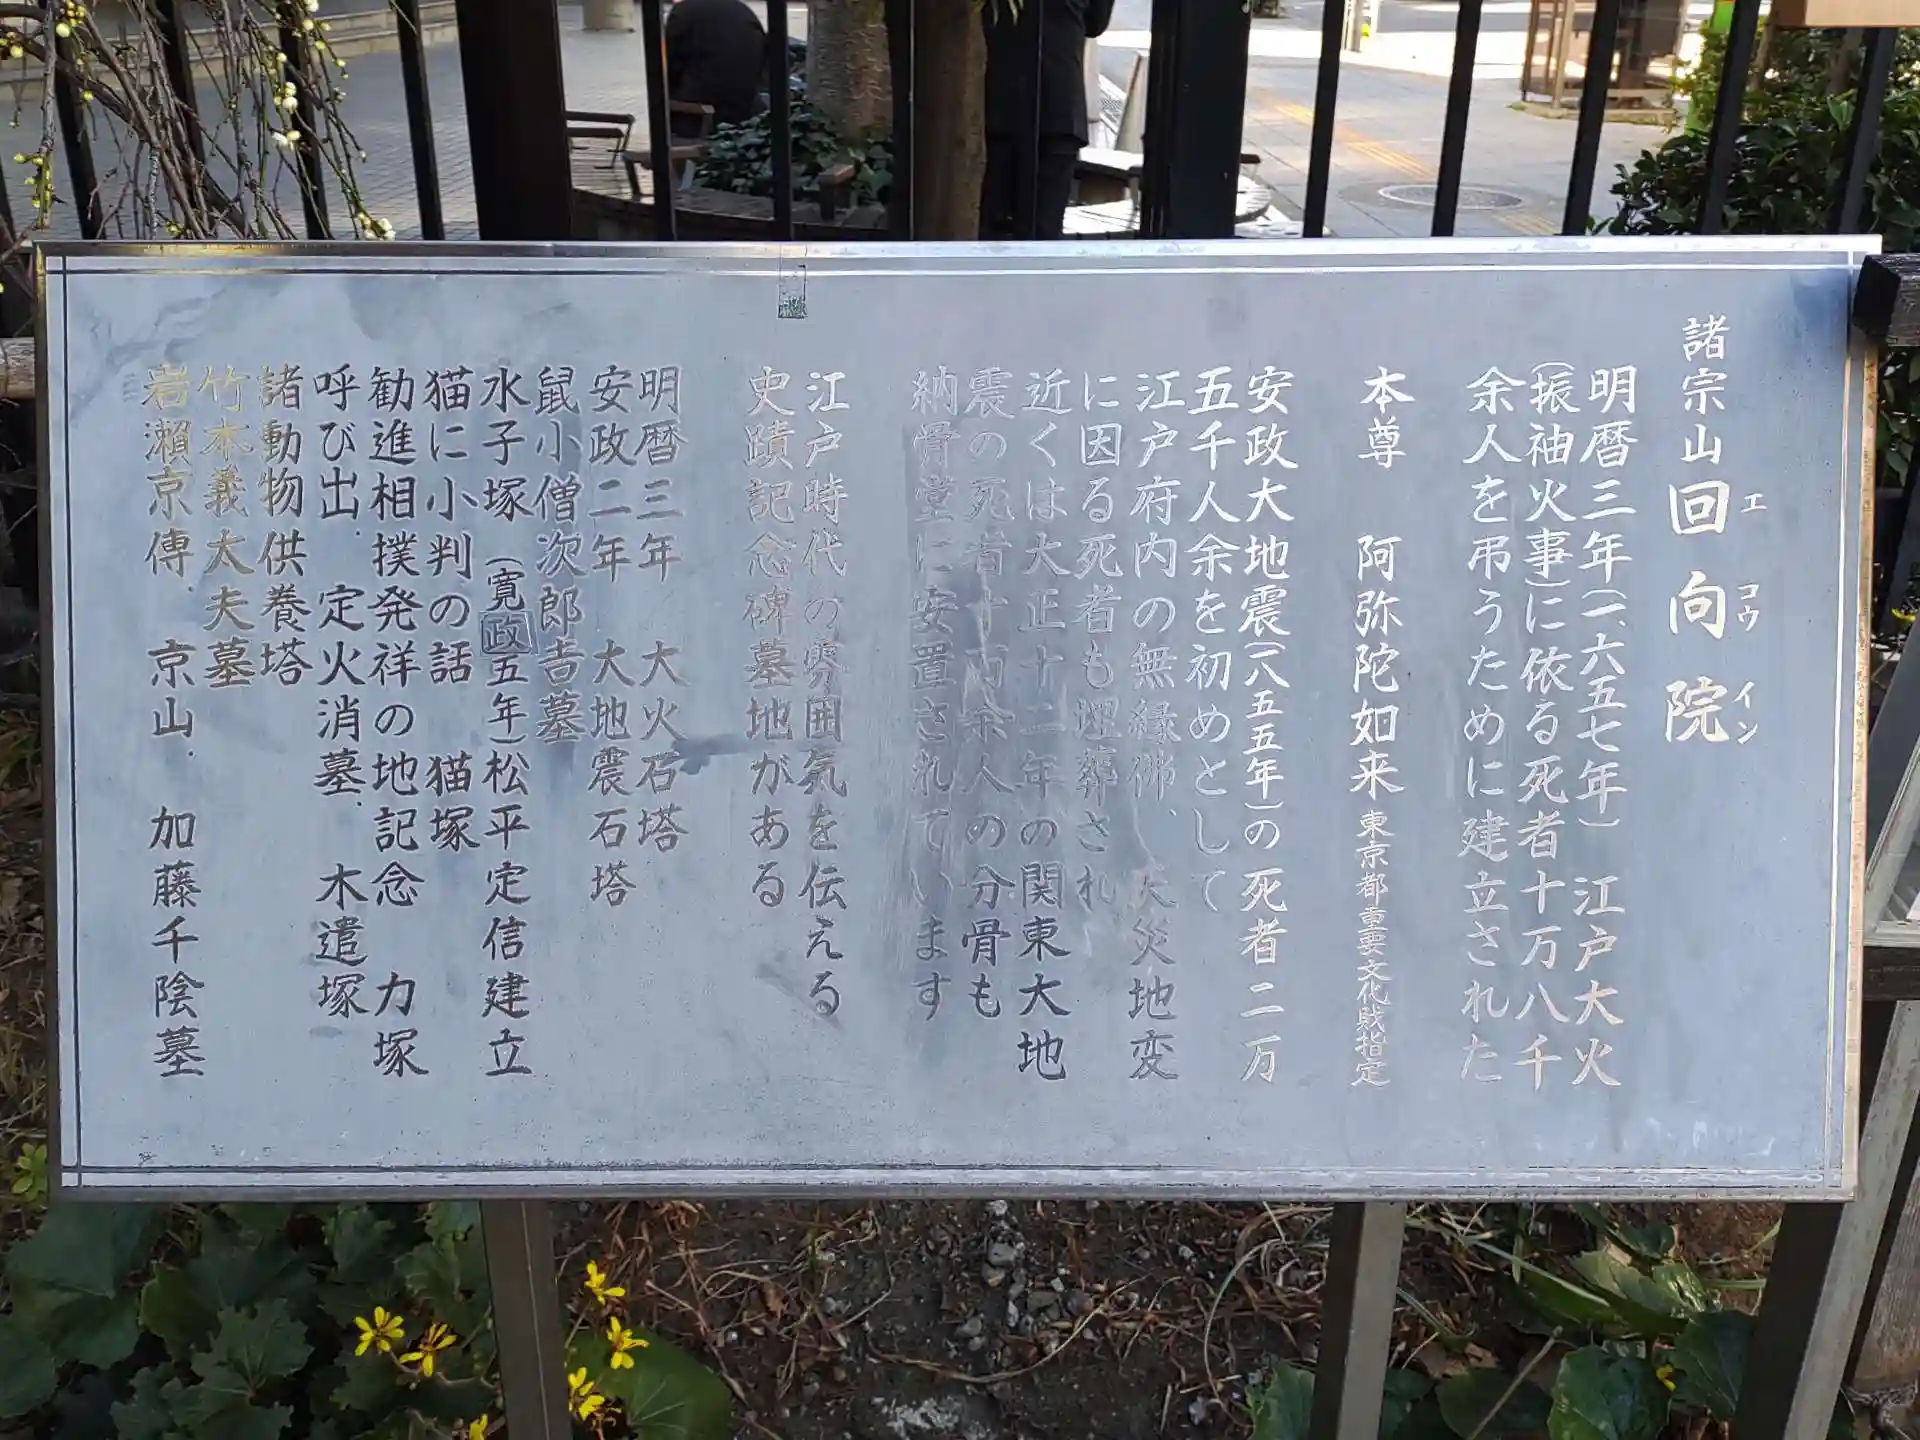 諸宗山回向院
エコウイン
明暦三年(一、六五七年) 江戸大火
(振袖火事)に依る死者十万八千
余人を弔うために建立された
本尊 阿弥陀如来 東京都重要文化財指定
安政大地震(一八五五年)の死者二万
五千人余を初めとして
江戸府内の無縁佛、天災地変
に因る死者も埋葬され
近くは大正十二年の関東大地
震の死者十万余人の分骨も
納骨堂に安置されています
江戸時代の雰囲気を伝える
史蹟記念碑墓地がある
明暦三年 大火石塔
安政二年 大地震石塔
鼠小僧次郎吉墓
水子塚(寛政五年)松平定信建立
猫に小判の話 猫塚
勧進相撲発祥の地記念 力塚
呼び出、定火消墓、木遣塚
諸動物供養塔
竹本義太夫墓
岩瀬京傳、京山、加藤千陰墓